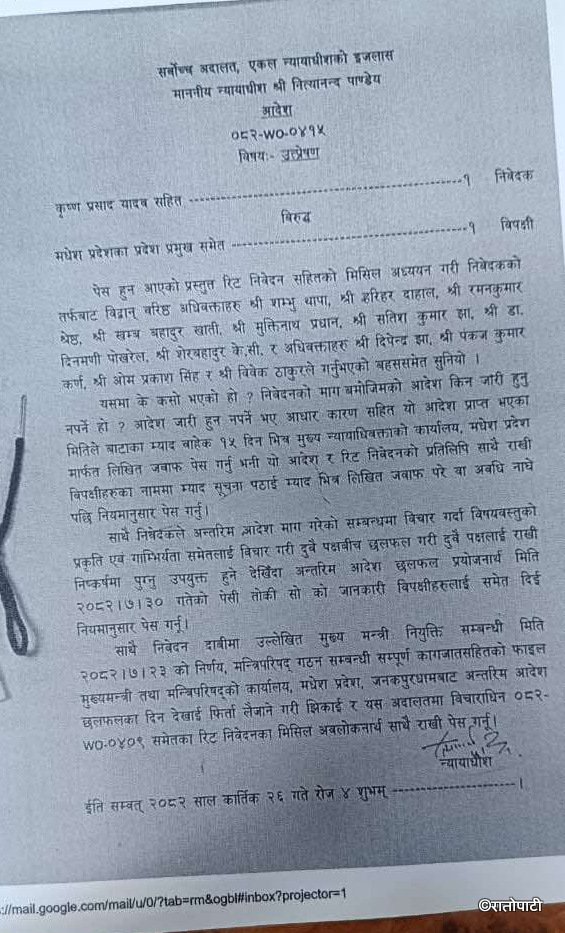 सर्वोच्च अदालत, एकल न्यायाधीशको इजलास
माननीय न्यायाधीश श्री नित्यानन्द पाण्डेय
आदेश
०८२-WO-०४१५
विषयः- उत्प्रेषण
कृष्ण प्रसाद यादव सहित ------------------------------------------१ निवेदक
विरुद्ध
मधेश प्रदेशका प्रदेश प्रमुख समेत ------------------------------------१ विपक्षी
पेस हुन आएको प्रस्तुत रिट निवेदन सहितको मिसिल अध्ययन गरी निवेदकको
तर्फबाट विद्वान् वरिष्ठ अधिवक्ताहरु श्री शम्भु थापा, श्री हरिहर दाहाल, श्री रमनकुमार
श्रेष्ठ, श्री खम्ब बहादुर खाती, श्री मुक्तिनाथ प्रधान, श्री सतिश कुमार झा, श्री डा.
दिनमणी पोखरेल, श्री शेरबहादुर के.सी. र अधिवक्ताहरु श्री दिपेन्द्र झा, श्री पंकज कुमार
कर्ण, श्री ओम प्रकाश सिंह र श्री विवेक ठाकुरले गर्नुभएको बहससमेत सुनियो ।
यसमा के कसो भएको हो ? निवेदनको माग बमोजिमको आदेश किन जारी हुनु
नपर्ने हो ? आदेश जारी हुन नपर्ने भए आधार कारण सहित यो आदेश प्राप्त भएका
मितिले बाटाका म्याद बाहेक १५ दिन भित्र मुख्य न्यायाधिवक्ताको कार्यालय, मधेश प्रदेश
मार्फत लिखित जवाफ पेस गर्नु भनी यो आदेश र रिट निवेदनको प्रतिलिपि साथै राखी
विपक्षीहरुका नाममा म्याद सूचना पठाई म्याद भित्र लिखित जवाफ परे वा अवधि नाघे
पछि नियमानुसार पेस गर्नु।
साथै निवेदकले अन्तरिम आदेश माग गरेको सम्बन्धमा विचार गर्दा विषयवस्तुको
प्रकृति एवं गाम्भिर्यता समेतलाई विचार गरी दुवै पक्षबीच छलफल गरी दुवै पक्षलाई राखी
निष्कर्षमा पुग्नु उपयुक्त हुने देखिँदा अन्तरिम आदेश छलफल प्रयोजनार्थ मिति
२०८२।७।३० गतेको पेसी तोकी सो को जानकारी विपक्षीहरुलाई समेत दिई
नियमानुसार पेस गर्नू।
साथै निवेदन दाबीमा उल्लेखित मुख्य मन्त्री नियुक्ति सम्बन्धी मिति
२०८२।७।२३ को निर्णय, मन्त्रिपरिषद् गठन सम्बन्धी सम्पूर्ण कागजातसहितको फाइल
मुख्यमन्त्री तथा मन्त्रिपरिषद्को कार्यालय, मधेश प्रदेश, जनकपुरधामबाट अन्तरिम आदेश
छलफलका दिन देखाई फिर्ता लैजाने गरी झिकाई र यस अदालतमा विचाराधिन ०८२-
WO-०४०९ समेतका रिट निवेदनका मिसिल अवलोकनार्थ साथै राखी पेस गर्नु।
न्यायाधीश
ईति सम्वत् २०८२ साल कार्तिक २६ गते रोज ४ शुभम् ---------------------।
://mail.google.com/mail/u/0/?tab=rm&ogbl#inbox?projector=1
©रातोपाटी